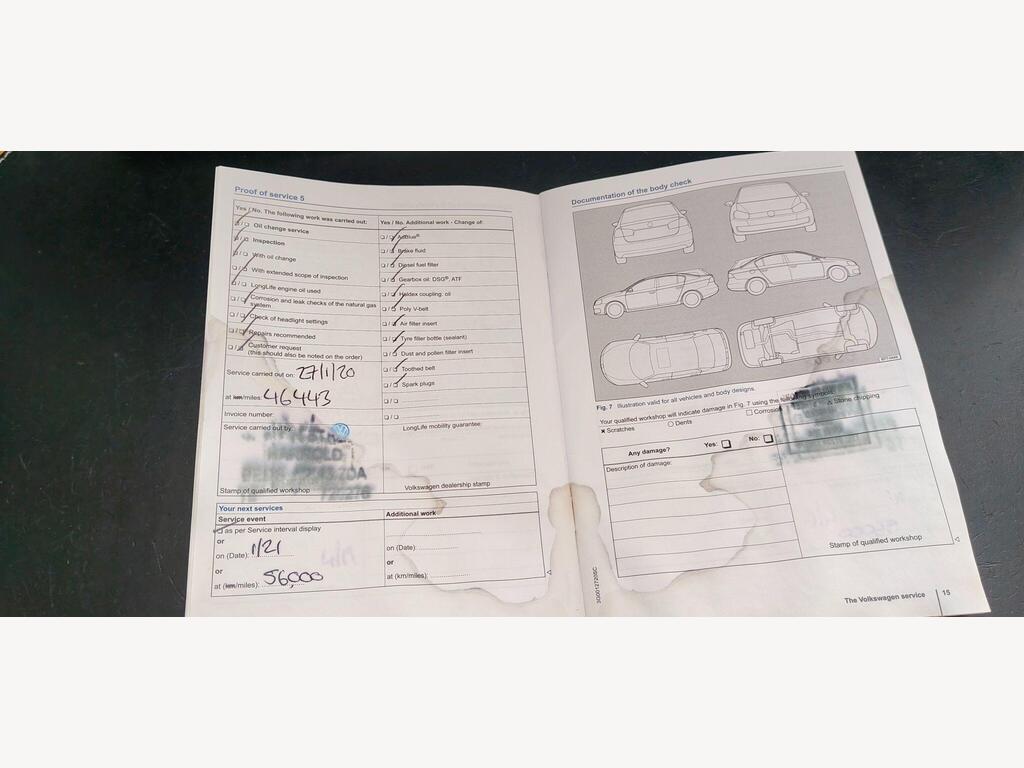 Proof of service 5
Yes / No. The following work was carried out:
Oil change service
Inspection
With oil change
With extended scope of inspection
LongLife engine oil used
Corrosion and leak checks of the natural gas
system
Check of headlight settings
Repairs recommended
Customer request
(this should also be noted on the order)
Service carried out on: 27/1/20
at km/miles: 46443
Invoice number:
Service carried out by:
Stamp of qualified workshop
Yes / No. Additional work - Change of:
AdBlue®
Brake fluid
Diesel fuel filter
Gearbox oil: DSG®, ATF
Haldex coupling: oil
Poly V-belt
Air filter insert
Tyre filler bottle (sealant)
Dust and pollen filter insert
Toothed belt
Spark plugs
LongLife mobility guarantee:
Volkswagen dealership stamp
Your next services
Service event
as per Service interval display
or
on (Date): 1/21
or
at (km/miles): 56,000
Additional work
on (Date):
or
at (km/miles):
Documentation of the body check
Fig. 7 Illustration valid for all vehicles and body designs.
Your qualified workshop will indicate damage in Fig. 7 using the following symbols:
× Scratches
○ Dents
□ Corrosion
△ Stone chipping
Any damage? Yes: No:
Description of damage:
Stamp of qualified workshop
3G0012720SC
The Volkswagen service 15